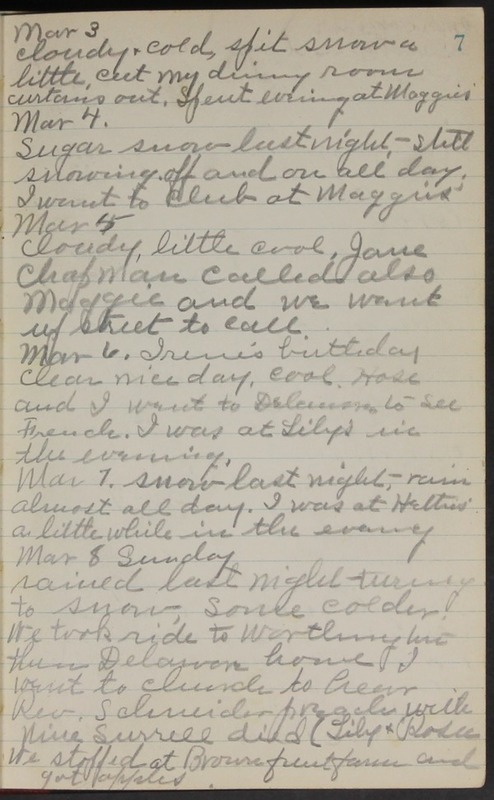 7
Mar 3
cloudy & cold, spit snow a
little, cut my dining room
curtains out. Spent evening at Maggies
Mar 4.
Sugar snow last night, - still
snowing off and on all day.
I went to Club at Maggies
Mar 5
Cloudy, little cool, Jane
Chapman called also
Maggie and we went
up street to call.
Mar 6. Irene's birthday
Clear nice day, cool. Rose
and I went to Delaware to see
French. I was at Lily's in
the evening.
Mar 7. snow last night, - rain
almost all day. I was at Hetties
a little while in the eveing
Mar 8 Sunday
rained last night turning
to snow, some colder.
We took ride to Worthington
then Delaware home I
went to church to hear
Rev. Schneider preach
died (Lily & Rose
We stopped at Brown fruit farm and
got apples.